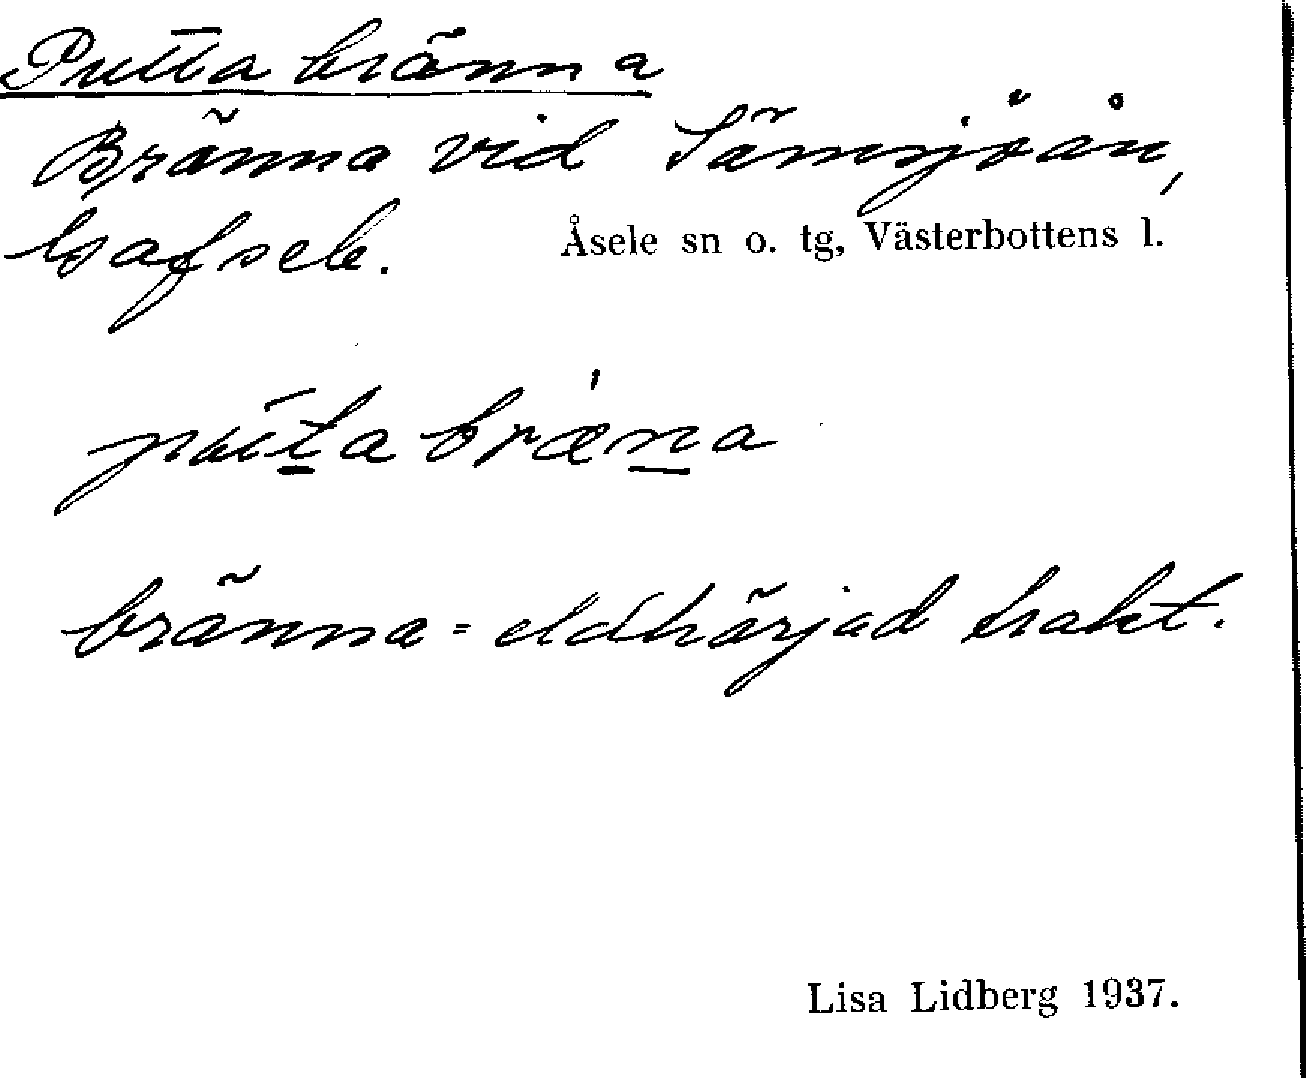 Puttabränna
Bränna vid Tämsjöån,
Gafsele.
Åsele sn o. tg, Västerbottens l.
puta bræna
bränna = eldhärjad trakt.
Lisa Lidberg 1937.